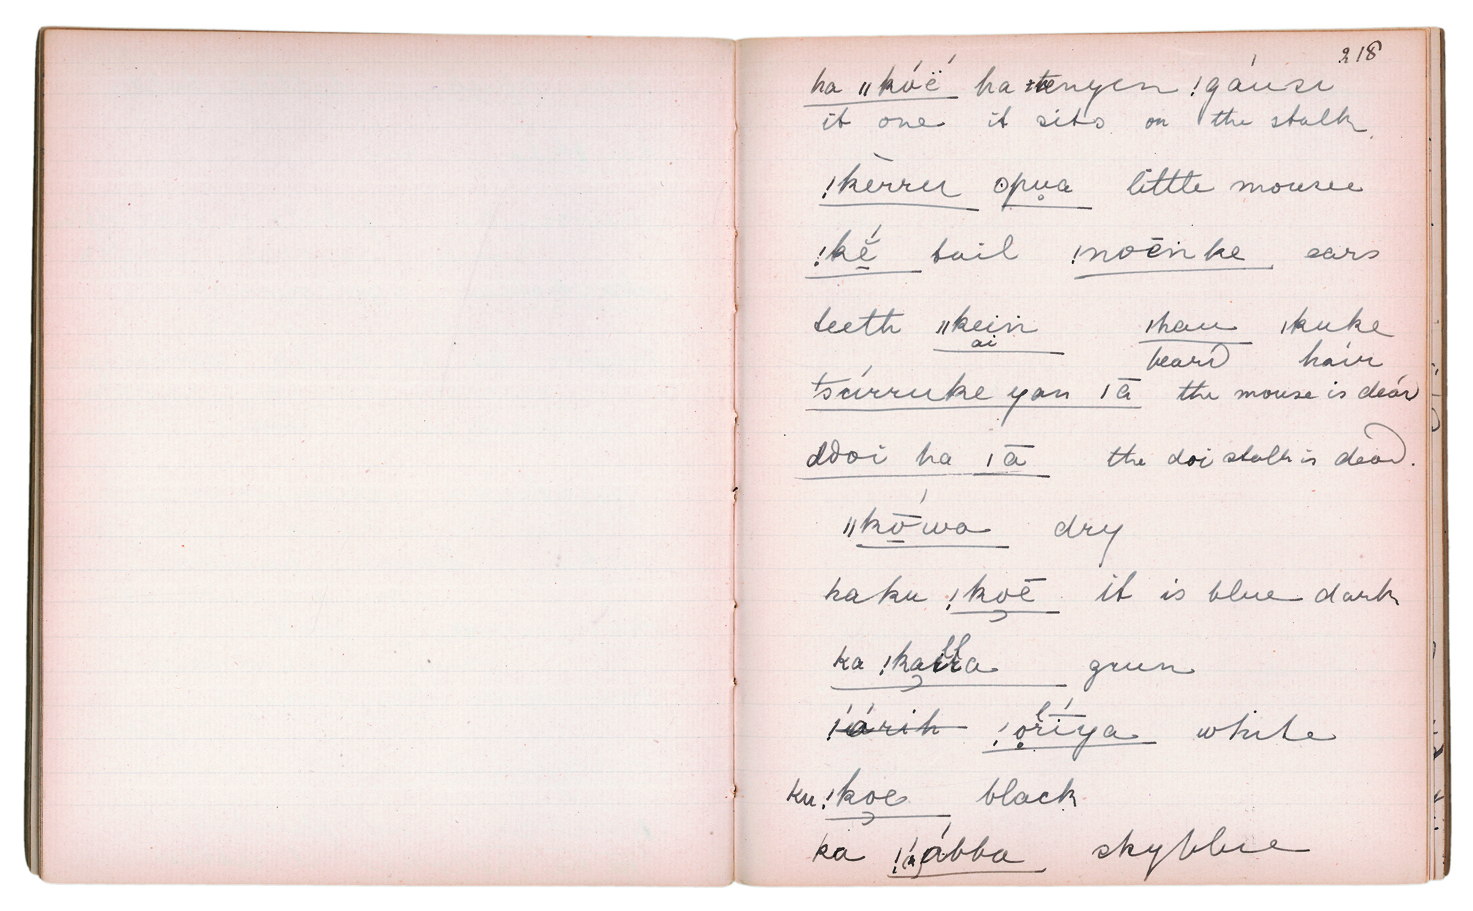 218
ha ǁkóë́ ha tenyen !gáusi
it one it sits on the stalk.
!kērru opu̥a little mouse
!kḗ̆ tail !noēn̈ke ears
teeth ǁkein ǀhau ǀkuke
ai beard hair
tsúrruke yan ǀā the mouse is dead
ddoi ha ǀā the doi stalk is dead.
ǁkṓwa dry
haku !koē it is blue dark
ka !kaa grun
!árih !oríya white
ku !koe black
ka !ábba skyblue